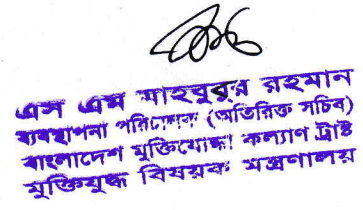 এস এম মাহবুবুর রহমান
ব্যবস্থাপনা পরিচালক (অতিরিক্ত সচিব)
বাংলাদেশ মুক্তিযোদ্ধা কল্যাণ ট্রাষ্ট
মুক্তিযুদ্ধ বিষয়ক মন্ত্রণালয়